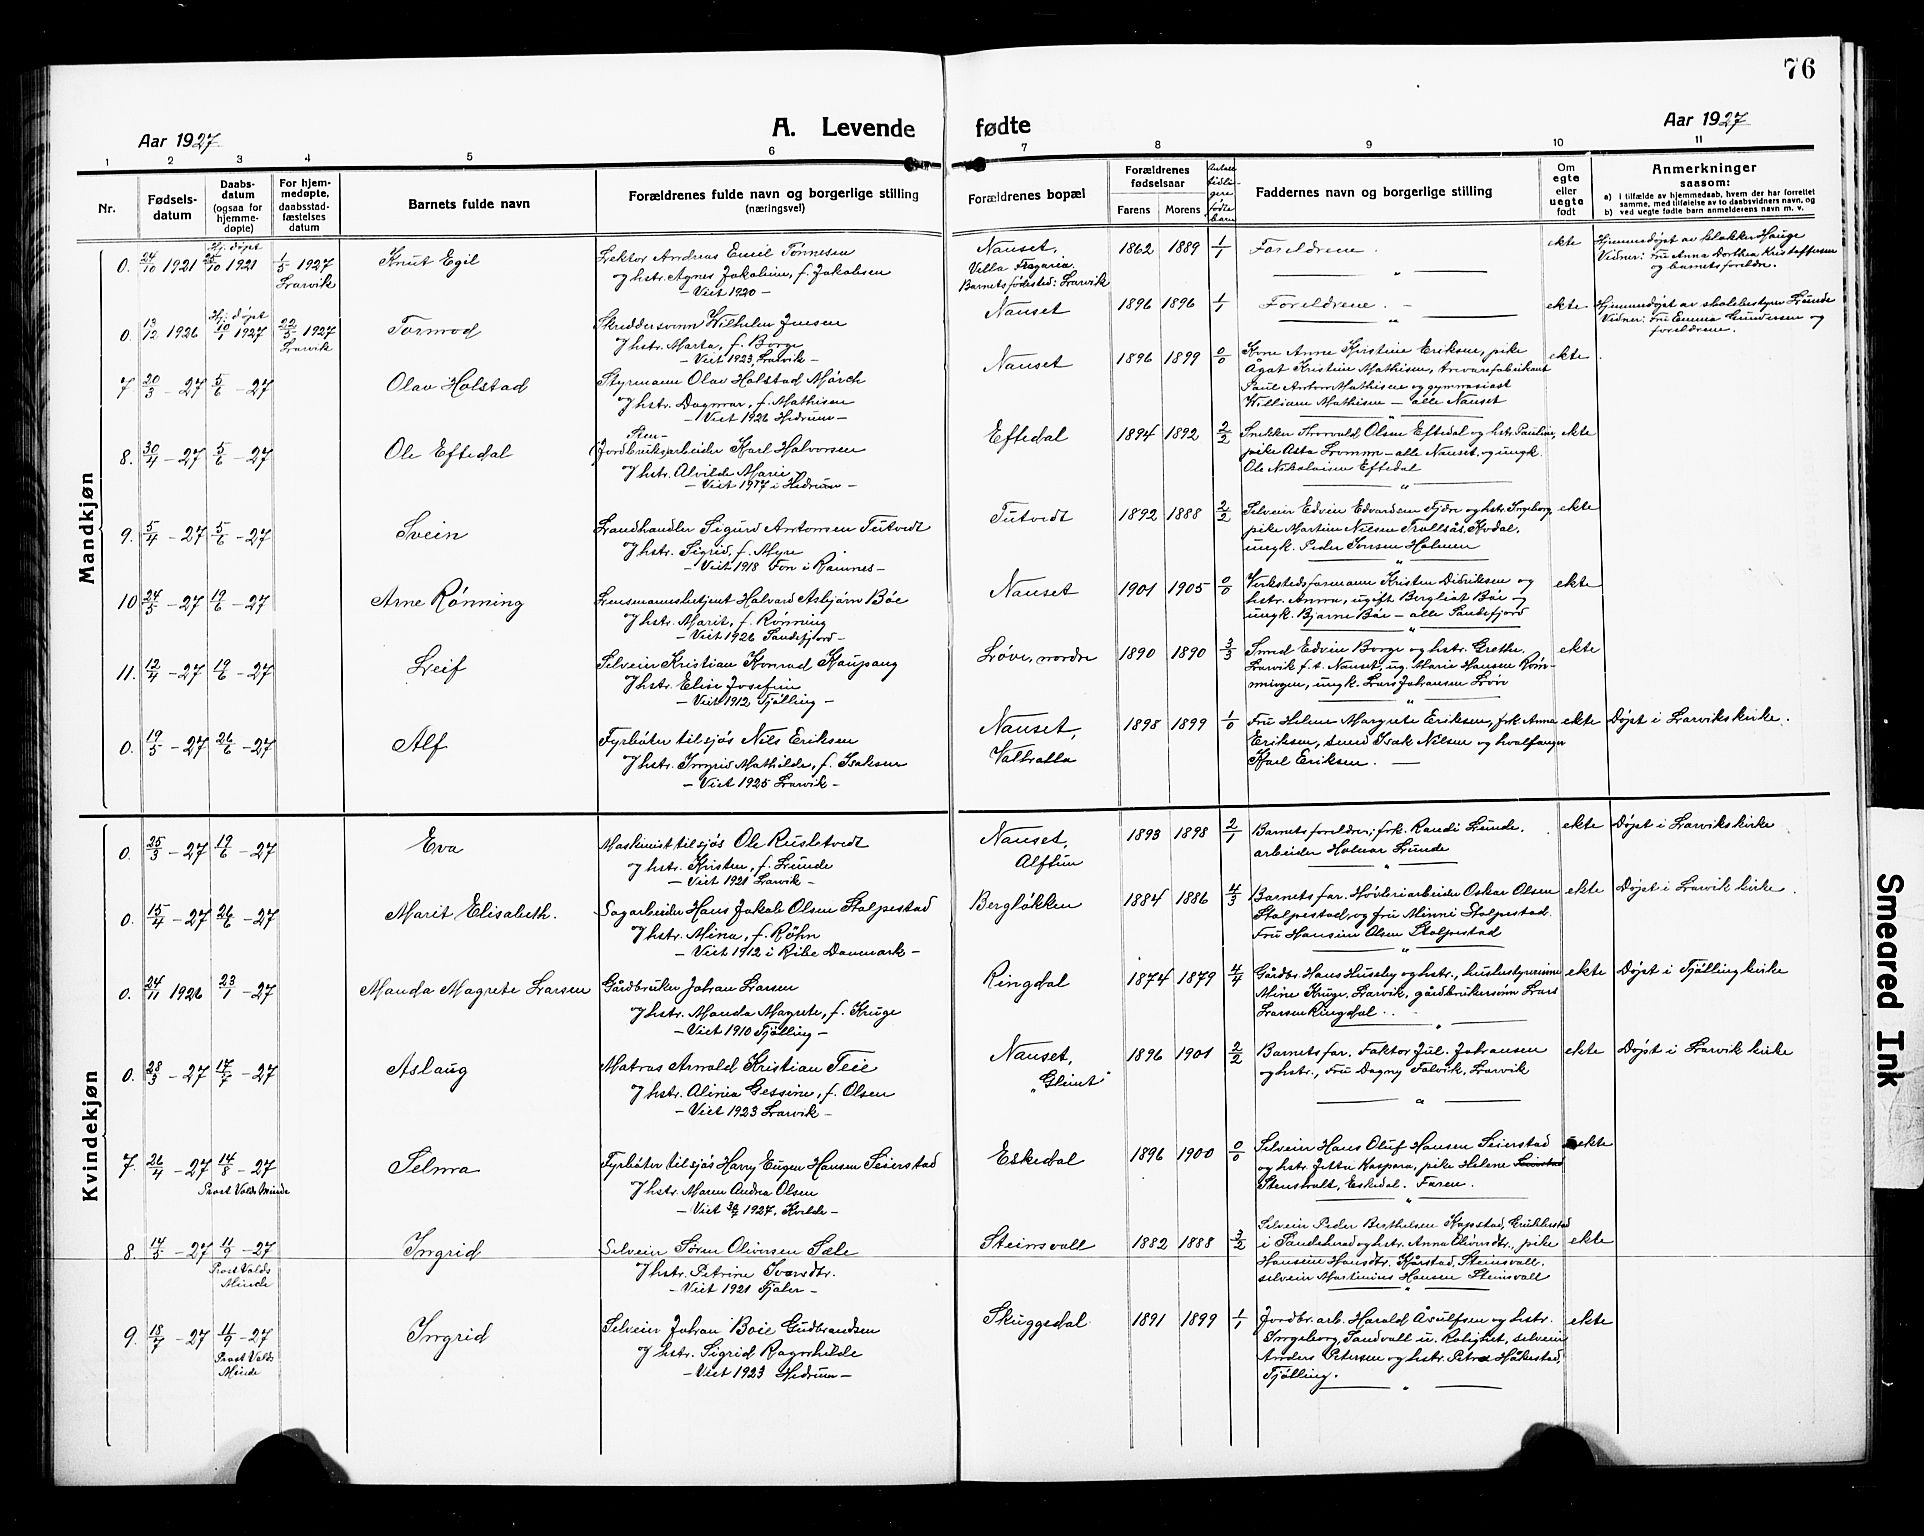 76
Aar 1927
A. Levende fødte
Aar 1927
1 2 3 4 5 6 7 8 9 10 11
Nr.
Fødsels-
datum
Daabs-
datum
(ogsaa for
hjemme-
døpte)
For hjem-
medøpte,
daabsstad-
fæstelses
datum
Barnets fulde navn
Forældrenes fulde navn og borgerlige stilling
(næringsvei)
Forældrenes bopæl
Forældrenes
fødselsaar
Farens Morens
Antal
tidli-
gere
fødte
barn
Faddernes navn og borgerlige stilling
Om
egte
eller
uegte
født
Anmerkninger
saasom:
a) i tilfælde av hjemmedaab, hvem der har forrettet
samme, med tilføielse av to daabsvidners navn, og
b) ved uegte fødte barn anmelderens navn m. v.
Mandkjøn
0. 24/10 1921 Hj. døpt 25/10 1921 1/5 1927 Larvik
Knut Egil
Lektor Andreas Emil Tønnesen
og hstr. Agnes Jakobine, f. Jakobsen
- Viet 1920 -
Nanset,
Villa Fragaria.
Barnets fødested: Larvik
1862 1889 1/1
Foreldrene.
ekte
Hjemmedøpt av klokker Hauge
Vidner: Fru Anna Dorthea Kristoffersen
og barnets foreldre.
0. 13/12 1926 Hj. døpt 10/1 1927 22/5 1927 Larvik
Tormod
Skreddersvenn Wilhelm Jensen
og hstr. Marta, f. Borge
- Viet 1923, Larvik -
Nanset
1896 1896 1/1
Foreldrene. -
ekte
Hjemmedøpt av skolebestyrer Lunde
Vidner: Fru Emma Gundersen og
foreldrene.
7 20/3 - 27 5/6 - 27
Olav Holstad
Styrmann Olav Holstad Mørch
og hstr. Dagmar, f. Mathisen
- Viet 1926 Hedrum -
Nanset
1896 1899 0/0
Kone Anna Kristine Eriksen, pike
Ågot Kristine Mathisen, trevarefabrikant
Paul Anton Mathisen og gymnasiast
William Mathisen - alle Nanset
ekte
8. 30/4 - 27 5/6 - 27
Ole Eftedal
Sten-
(Jordbruksarbeider Karl Halvorsen
og hstr. Alvilde Marie
- Viet 1917 i Hedrum -
Eftedal
1894 1892 2/2
Snekker Thorvald Olsen Eftedal og hstr. Pauline,
pike Asta Lromm - alle Nanset. og ungk.
Ole Nikolaisen Eftedal
ekte
9. 5/4 - 27 5/6 - 27
Svein
Landhandler Sigurd Antonsen Tutvedt
og hstr. Sigrid, f. Myre
- Viet 1918 Fon i Ramnes -
Tutvedt
1892 1888 2/2
Selveier Edvin Edvardsen Fjære og hstr. Ingeborg,
pike Martine Nilsen Trollsås, Kvdal,
ungk. Peder Iversen Holmen
ekte
10 24/5 - 27 19/6 - 27
Arne Rønning
Lensmannsbetjent Halvard Asbjørn Bøe
og hstr. Marit, f. Rønning
- Viet 1926 Sandefjord -
Nanset
1901 1905 0/0
Verkstedsformann Kristen Didriksen og
hstr. Anna, ugift Bergliot Bøe og
ungk. Bjarne Bøe - alle Sandefjord
ekte
11. 12/4 - 27 19/6 - 27
Leif
Selveier Kristian Konrad Kaupang
og hstr. Elise Josefine
- Viet 1912 Tjølling -
Løve, nordre
1890 1890 3/3
Smed Edvin Borge og hstr. Grethe,
Larvik f. t. Nanset, ug. Marie Hansen Røn-
ningen, ungk. Lars Johansen Løve
ekte
0. 19/5 - 27 26/6 - 27
Alf
Fyrbøter tilsjøs Nils Eriksen
og hstr. Ingrid Mathilde, f. Isaksen
- Viet 1925 Larvik -
Nanset,
Valhalla
1898 1899 1/0
Fru Helene Margrete Eriksen, frk. Anna
Eriksen, smed Isak Nilsen og hvalfanger
Karl Eriksen. -
ekte
Døpt i Larviks kirke.
Kvindekjøn
0. 25/3 - 27 19/6 - 27
Eva
Maskinist tilsjøs Ole Rusletvedt
og hstr. Kristine, f. Lunde
- Viet 1921 Larvik -
Nanset,
Alftun
1893 1898 2/1
Barnets foreldre; frk. Randi Lunde.
arbeider Holvar Lunde
ekte
Døpt i Larviks kirke
0. 15/4 - 27 26/6 - 27
Marit Elisabeth.
Sagarbeider Hans Jakob Olsen Stolpestad
og hstr. Mina, f. Røhn
- Viet 1912 i Ribe Danmark -
Bergløkken
1884 1886 4/3
Barnets far. Høvleriarbeider Oskar Olsen
Stolpestad, og fru Minni Stolpestad.
Fru Hansine Olsen Stolpestad
ekte
Døpt i Larvik kirke.
0. 24/11 1926 23/1 - 27
Manda Magrete Larsen
Gårdbruker Johan Larsen
og hstr. Manda Magrete, f. Kruge
- Viet 1910 Tjølling -
Ringdal
1874 1879 4/4
Gårdbr. Hans Huseby og hstr., husbestyrerinne
Mine Kruge, Larvik, gårdbrukersønn Lars
Larsen Ringdal.
ekte
Døpt i Tjølling kirke
0. 28/3 - 27 17/7 - 27
Aslaug
Matros Arnold Kristian Teie
og hstr. Alinea Gessine, f. Olsen
- Viet 1923 Larvik -
Nanset,
"Glimt"
1896 1901 2/2
Barnets far. Faktor Jul. Johansen
og hstr., Fru Dagny Falvik, Larvik
ekte
Døpt i Larvik kirke
7. 26/4 - 27 14/8 - 27
Prost Volds Minde
Selma
Fyrbøter tilsjøs Harry Eugen Hansen Seierstad
og hstr. Maren Andrea Olsen
- Viet 30/7 1927. Kvelde -
Eskedal
1896 1900 0/0
Selveier Hans Oluf Hansen Seierstad
og hstr. Jetta Kaspara, pike Helene Seierstad
Stensholt, Eskedal. Faren.
ekte
8. 14/5 - 27 11/9 - 27
Prost Volds
Minde
Ingrid
Selveier Søren Oliversen Sæle
og hstr. Petrine Ivarsdtr.
- Viet 1921 Fjaler -
Steinsvall
1882 1888 3/2
Selveier Peder Berthelsen Kopstad,
i Sandeherad og hstr. Anna Eliasdtr., pike
Hansine Hansdtr. Hørstad, Steinsvall,
selveier Martinius Hansen Steinsvall
ekte
9. 18/7 - 27 11/9 - 27
Prost Volds
Minde
Ingrid
Selveier Johan Boie Gudbrandsen
og hstr. Sigrid Ragnhilde
- Viet 1923 Hedrum -
Skuggedal
1891 1899 1/1
Jordbr.arb. Harald Åsulfsen og hstr.
Ingeborg, Sandvoll u. Rolighet, selveier
Anders Petersen og hstr. Petra Håkestad,
Tjølling.
ekte
Smeared Ink